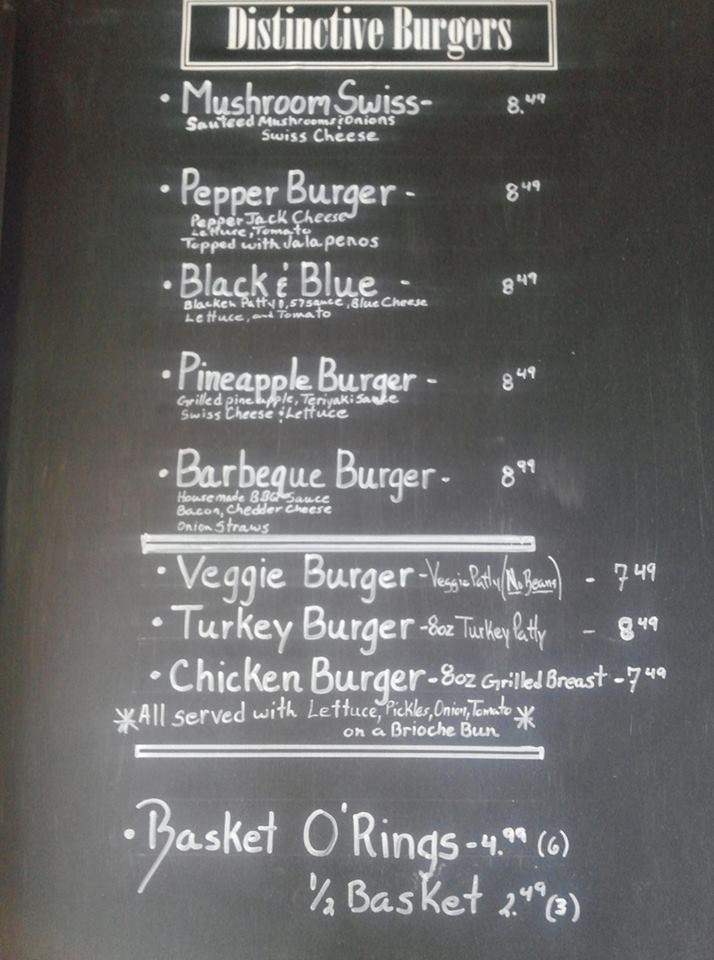 Distinctive Burgers
• Mushroom Swiss- 8.49
Sauteed Mushrooms & Onions
Swiss Cheese
• Pepper Burger - 8 49
Pepper Jack Cheese
Lettuce, Tomato
Topped with Jalapenos
• Black & Blue - 8 49
Blacken Patty, 57 sauce, Blue Cheese
Lettuce, and Tomato
• Pineapple Burger - 8 49
Grilled pineapple, Teriyaki Sauce
Swiss Cheese & Lettuce
• Barbeque Burger - 8 99
Housemade BBQ Sauce
Bacon, Chedder Cheese
Onion Straws
• Veggie Burger - Veggie Patty (No Beans) - 7 49
• Turkey Burger - 8oz Turkey Patty - 8 49
• Chicken Burger - 8oz Grilled Breast - 7 49
*All served with Lettuce, Pickles, Onion, Tomato *
on a Brioche Bun
• Basket O'Rings - 4.99 (6)
1/2 Basket 2.49 (3)